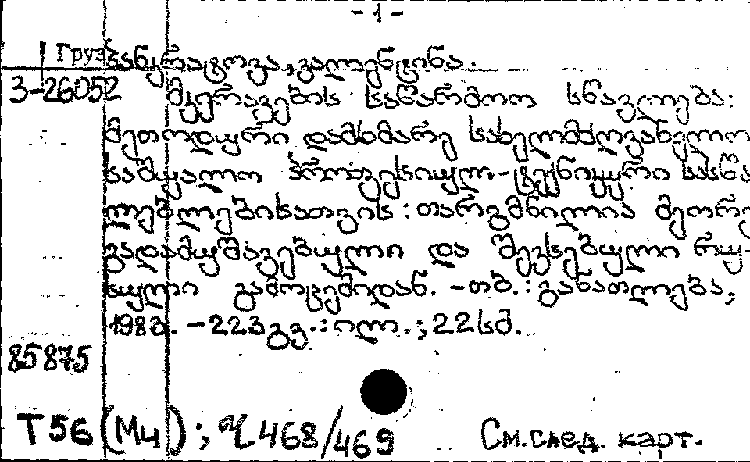 - 1 -
Груз
პანკრატოვა, ვალენტინა.
3-26052 მკერავების საწარმოო სწავლება:
მეთოდური დამხმარე სახელმძღვანელო
საშუალო პროფესიულ-ტექნიკური სასწა
ლებლებისათვის : თარგმნილია მეორე
გადამუშავებული და შევსებული რუ-
სული გამოცემიდან. - თბ. : განათლება,
198 . - 223 გვ. : ილ. ; 22 სმ.
85875
Т56 (Мц) ; 468/469 См. след. карт.